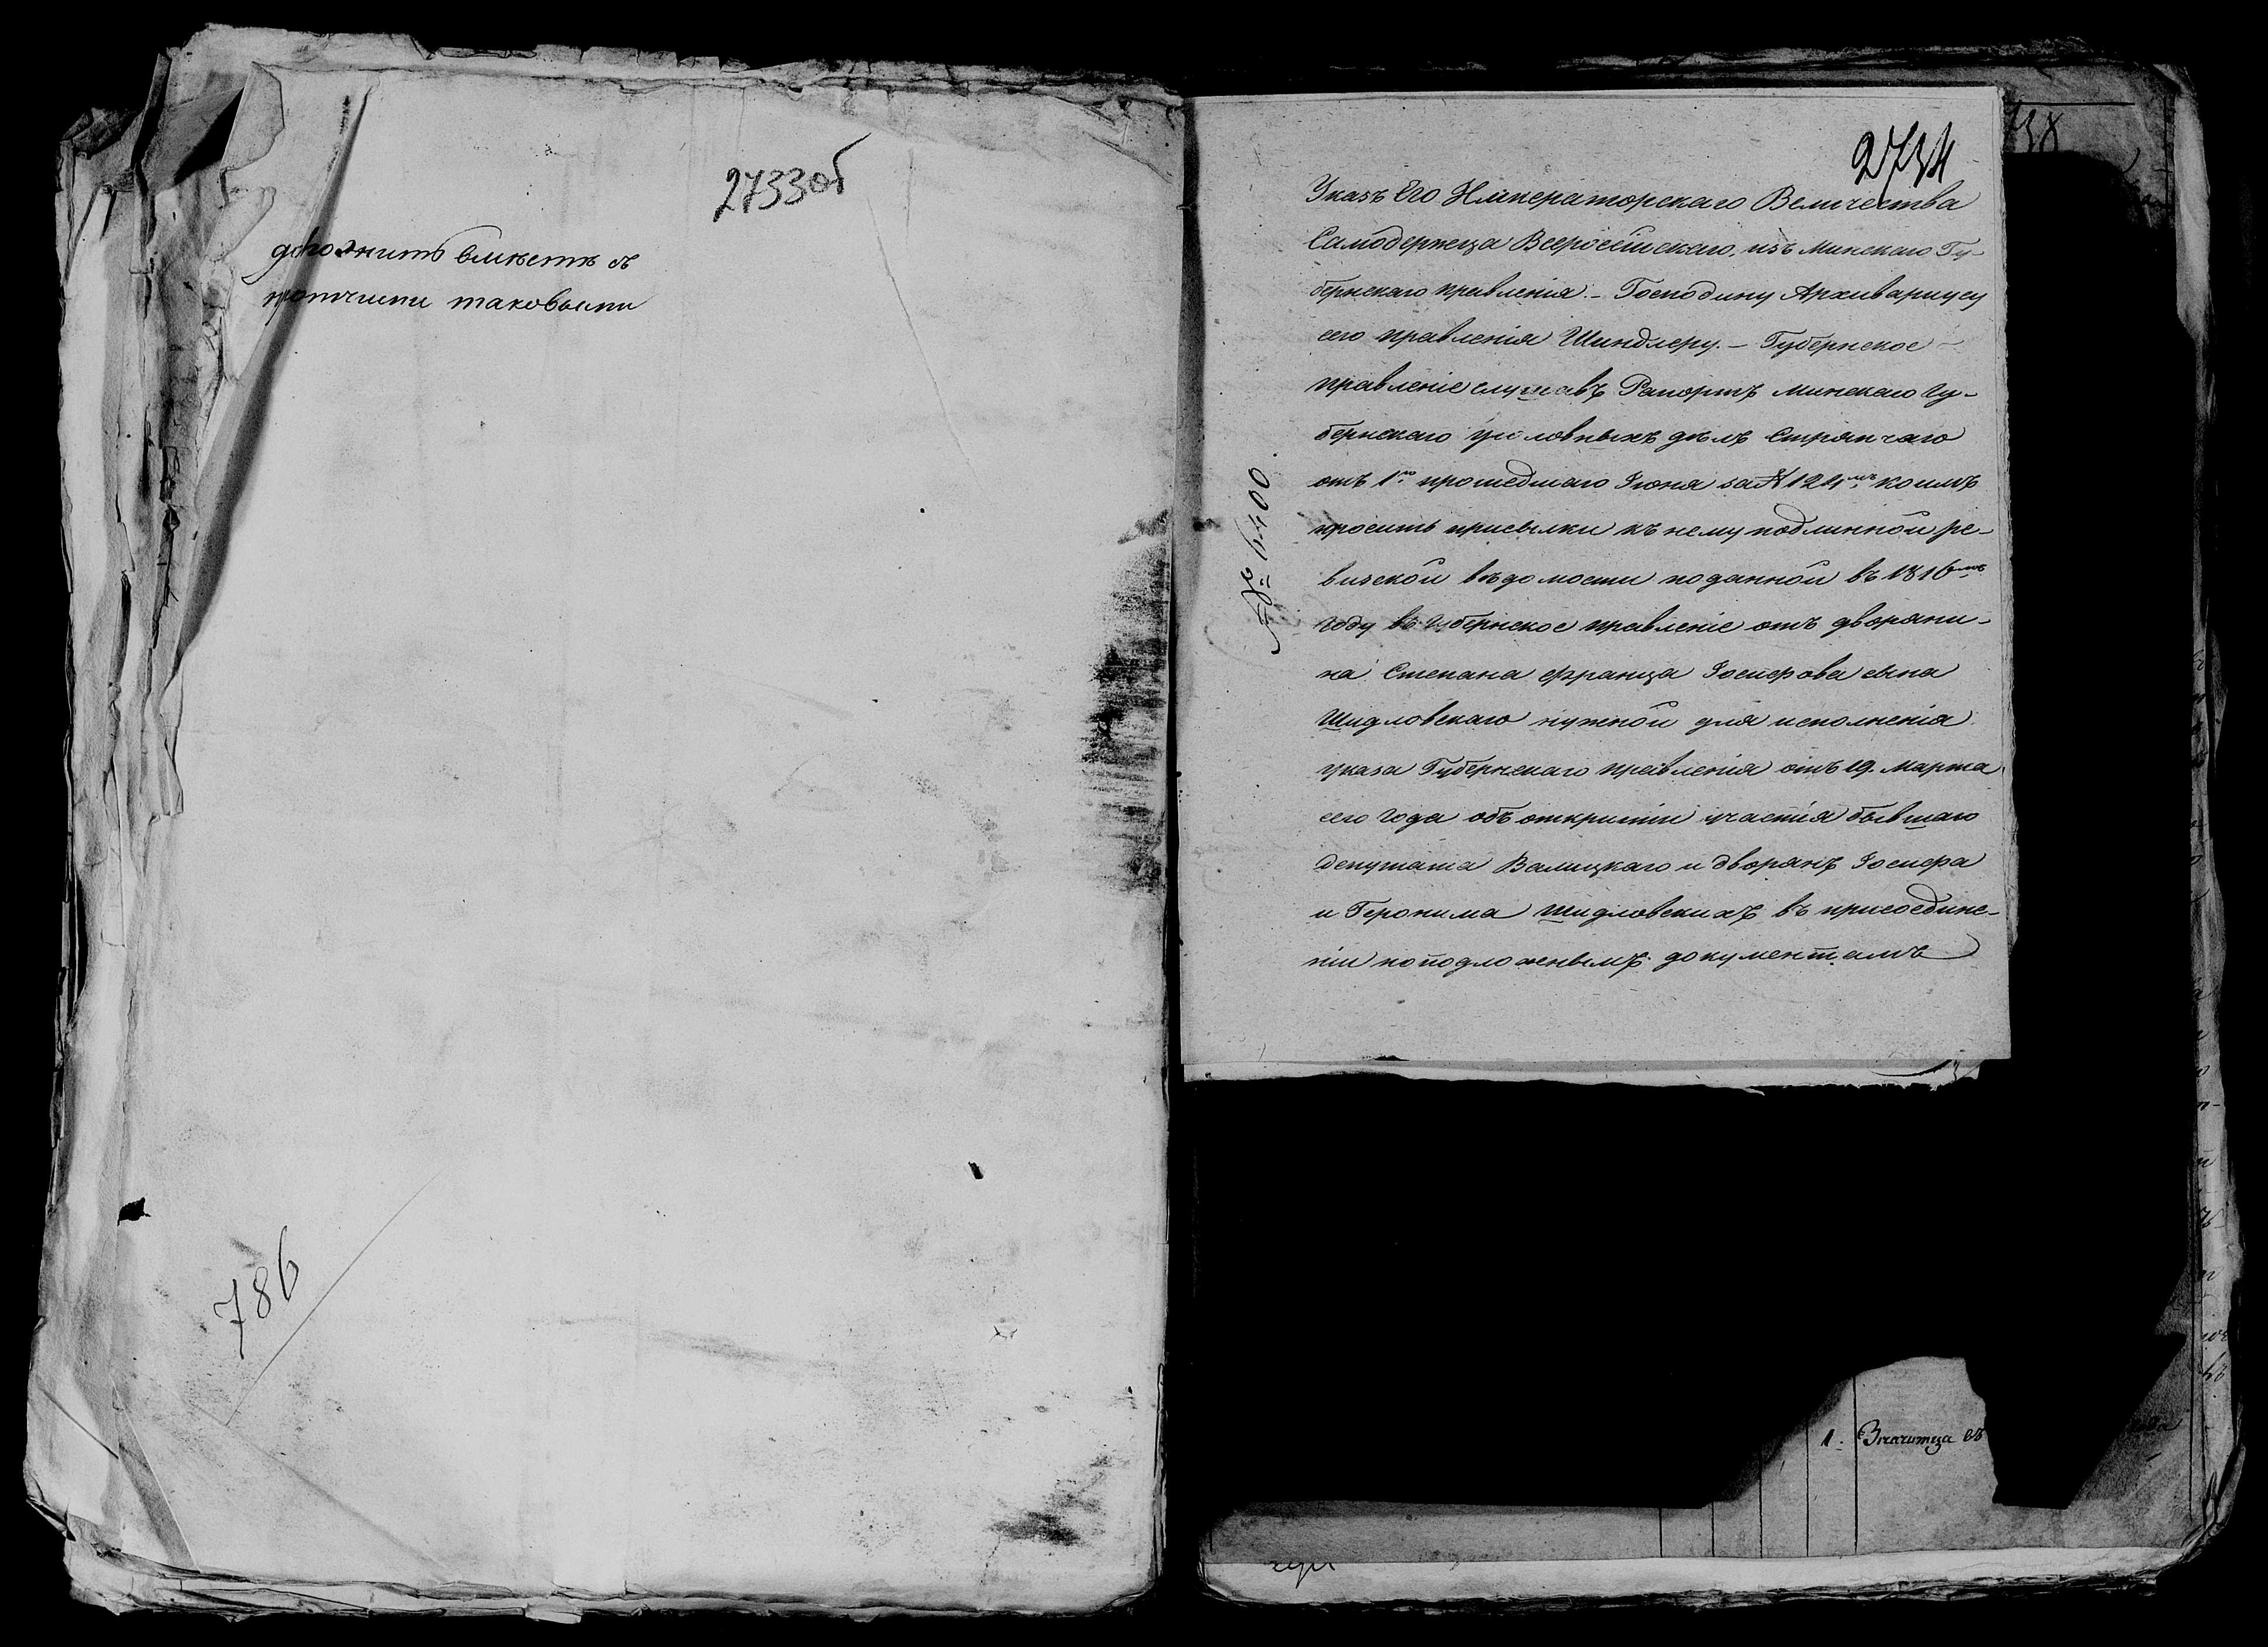 2733об
доложить вместе съ
протчими таковыми
786
2734
Указъ Его Императорскаго Величества
Самодержца Всероссійскаго, изъ Минскаго Гу-
бернскаго правленія. – Господину Архиваріусу
сего правленія Шиндлеру. – Губернское
правленіе слушавъ Рапортъ Минскаго Гу-
бернскаго уголовныхъ дѣлъ Стряпчаго
отъ 1го прошедшаго Іюня за № коимъ
проситъ присылки къ нему подлинной ре-
визской вѣдомости поданной въ 1816мъ
году въ Губернское правленіе отъ дворяни-
на Степана Франца Іосифова сына
Шидловскаго нужной для исполненія
указа Губернскаго правленія отъ 19. марта
сего года объ открытіи участія бывшаго
депутата Валицкаго и дворянъ Іосифа
и Геронима Шидловскихъ въ присоедине-
ніи по подложнымъ документамъ
№ 6400.
1. Значитца въ